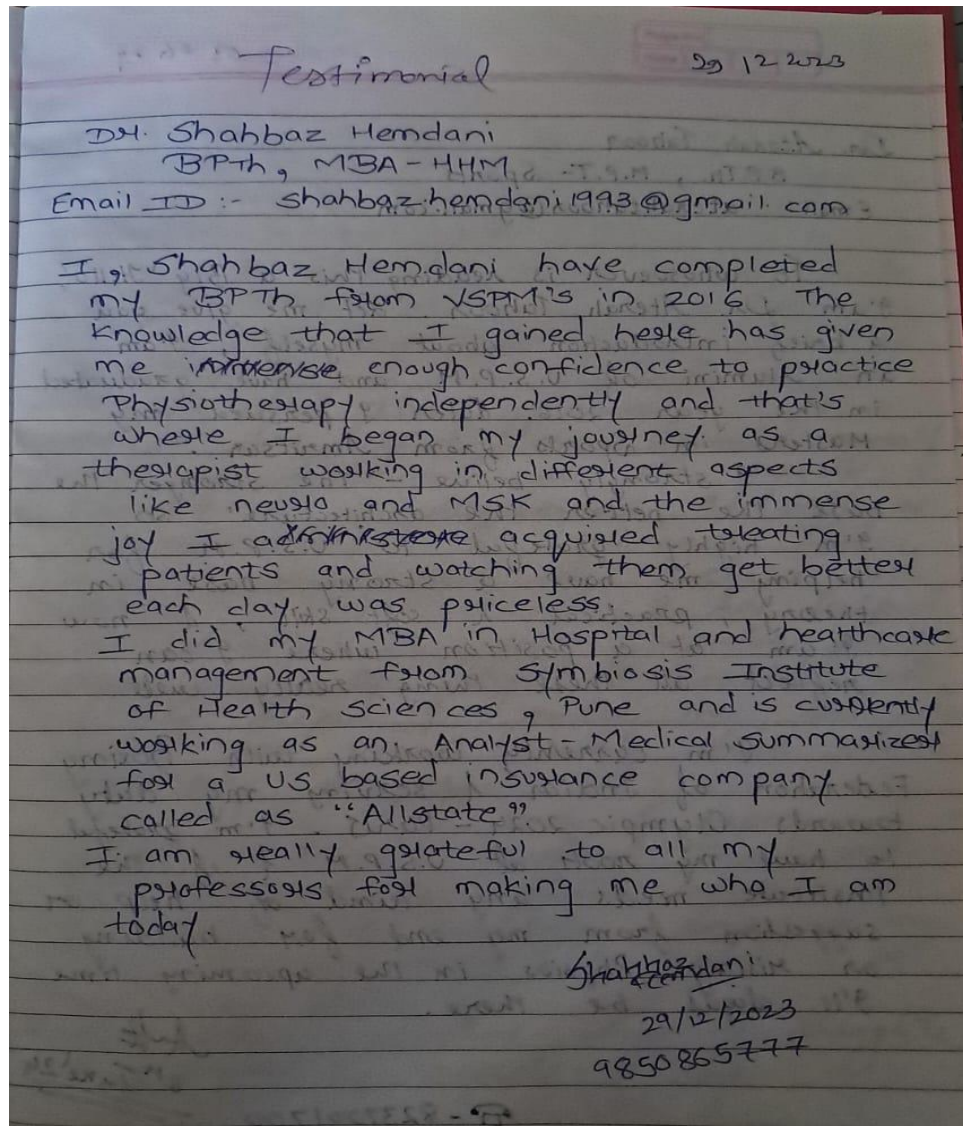 Testimonial
29 12 2023
Dr. Shahbaz Hemdani
BPTh, MBA-HHM
Email ID :- shahbaz.hemdani1993@gmail.com
I, Shahbaz Hemdani have completed
my BPTh from VSPM's in 2016 The
knowledge that I gained here has given
me enough confidence to practice
Physiotherapy independently and that's
where I began my journey as a
therapist working in different aspects
like neuro and MSK and the immense
joy I acquired treating
patients and watching them get better
each day was priceless.
I did my MBA in Hospital and healthcare
management from Symbiosis Institute
of Health sciences, Pune and is currently
working as an Analyst - Medical summarizer
for a US based insurance company
called as "Allstate"
I am really grateful to all my
professors for making me who I am
today.
Shahbaz
Hemdani
29/12/2023
9850865777